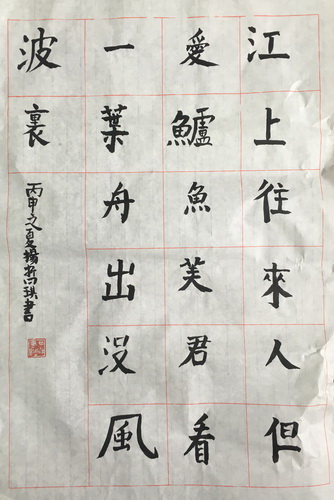 江上往來人但
愛鱸魚美君看
一葉舟出没風
波裏
丙申之夏楊書